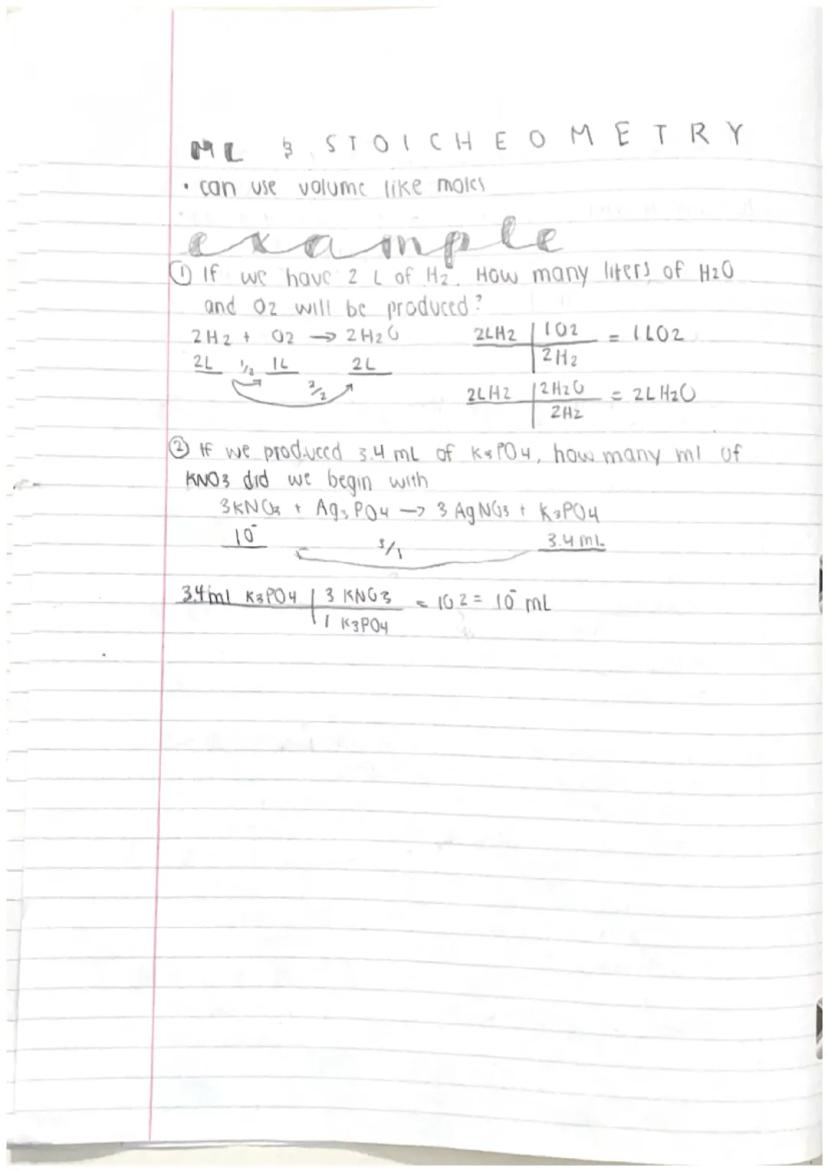 ML & STOICHEOMETRY
• can use volume like moles
example
① If we have 2 L of H2. How many liters of H2O
and O2 will be produced?
2H2 + O2 → 2H2O
2L 1/2 1L 2L
2/2
2LH2 | 1O2 = 1LO2
2H2
2LH2 | 2H2O = 2LH2O
2H2
② If we produced 3.4 mL of K3PO4, how many ml of
KNO3 did we begin with
3KNO3 + Ag3PO4 → 3AgNO3 + K3PO4
10̄ 3/1 3.4 mL
3.4ml K3PO4 | 3 KNO3 = 10.2 = 10̄ mL
1 K3PO4